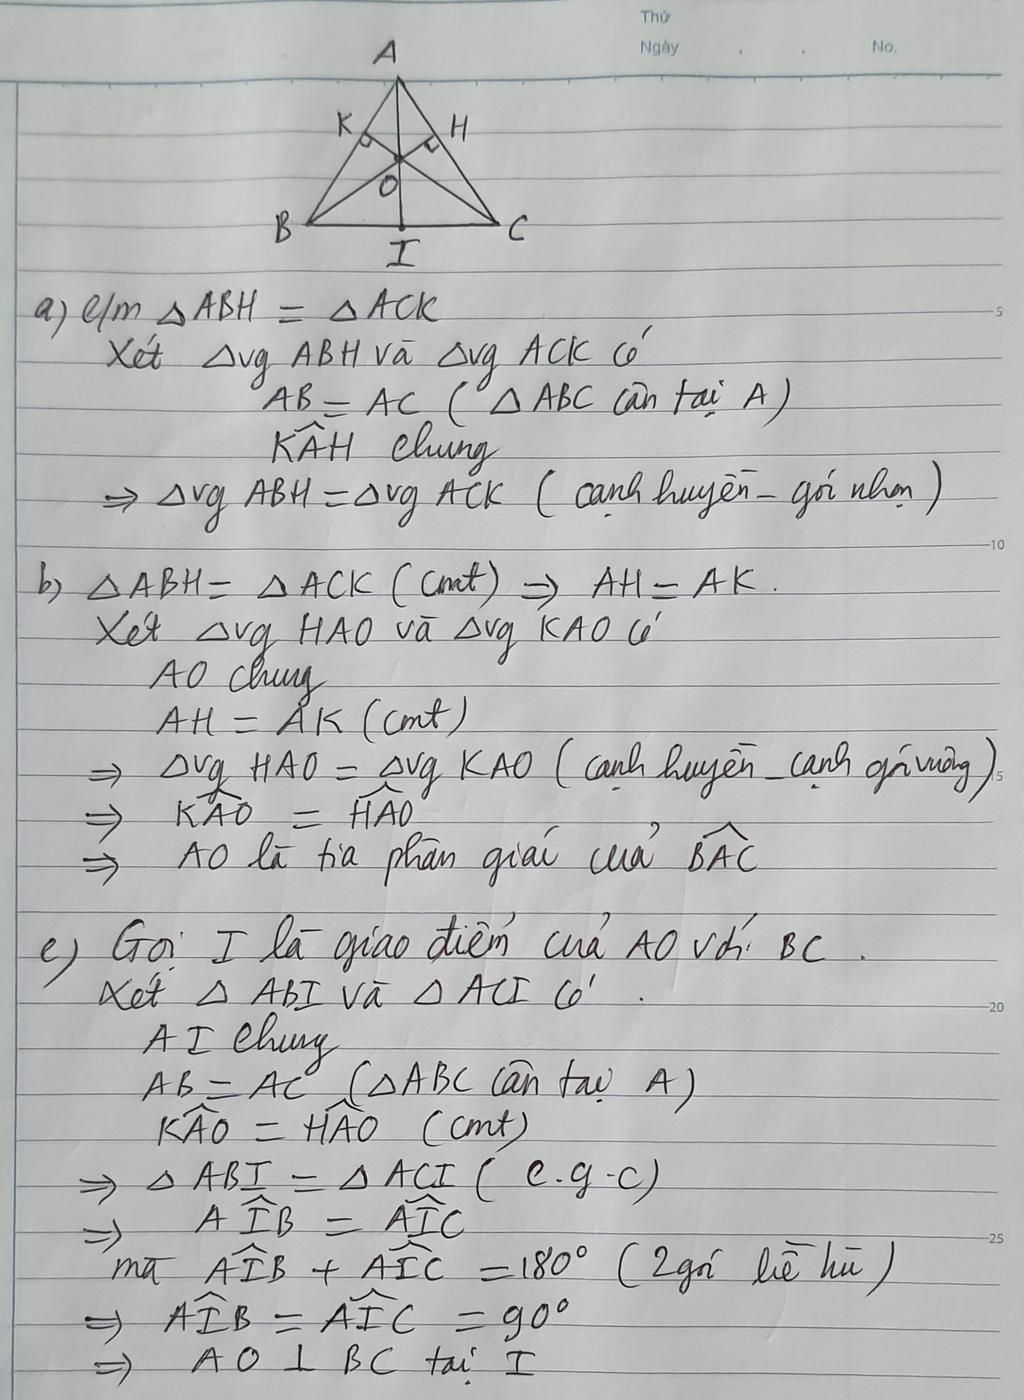 Thứ
Ngày . . No.
A
K H
O
B C
I
a) c/m △ABH = △ACK
Xét △vg ABH và △vg ACK có
AB = AC ( △ABC cân tại A)
K̂AH chung
⇒ △vg ABH = △vg ACK ( cạnh huyền - góc nhọn )
b) △ABH = △ACK (cmt) ⇒ AH = AK.
Xét △vg HAO và △vg KAO có
AO chung
AH = AK (cmt)
⇒ △vg HAO = △vg KAO ( cạnh huyền - cạnh góc vuông )
⇒ KÂO = HÂO
⇒ AO là tia phân giác của BÂC
c) Gọi I là giao điểm của AO với BC .
Xét △ ABI và △ ACI có .
AI chung
AB = AC (△ABC cân tại A)
KÂO = HÂO (cmt)
⇒ △ ABI = △ ACI ( c.g.c)
⇒ AÎB = AÎC
mà AÎB + AÎC = 180° ( 2 góc kề bù )
⇒ AÎB = AÎC = 90°
⇒ AO ⊥ BC tại I
5
10
15
20
25